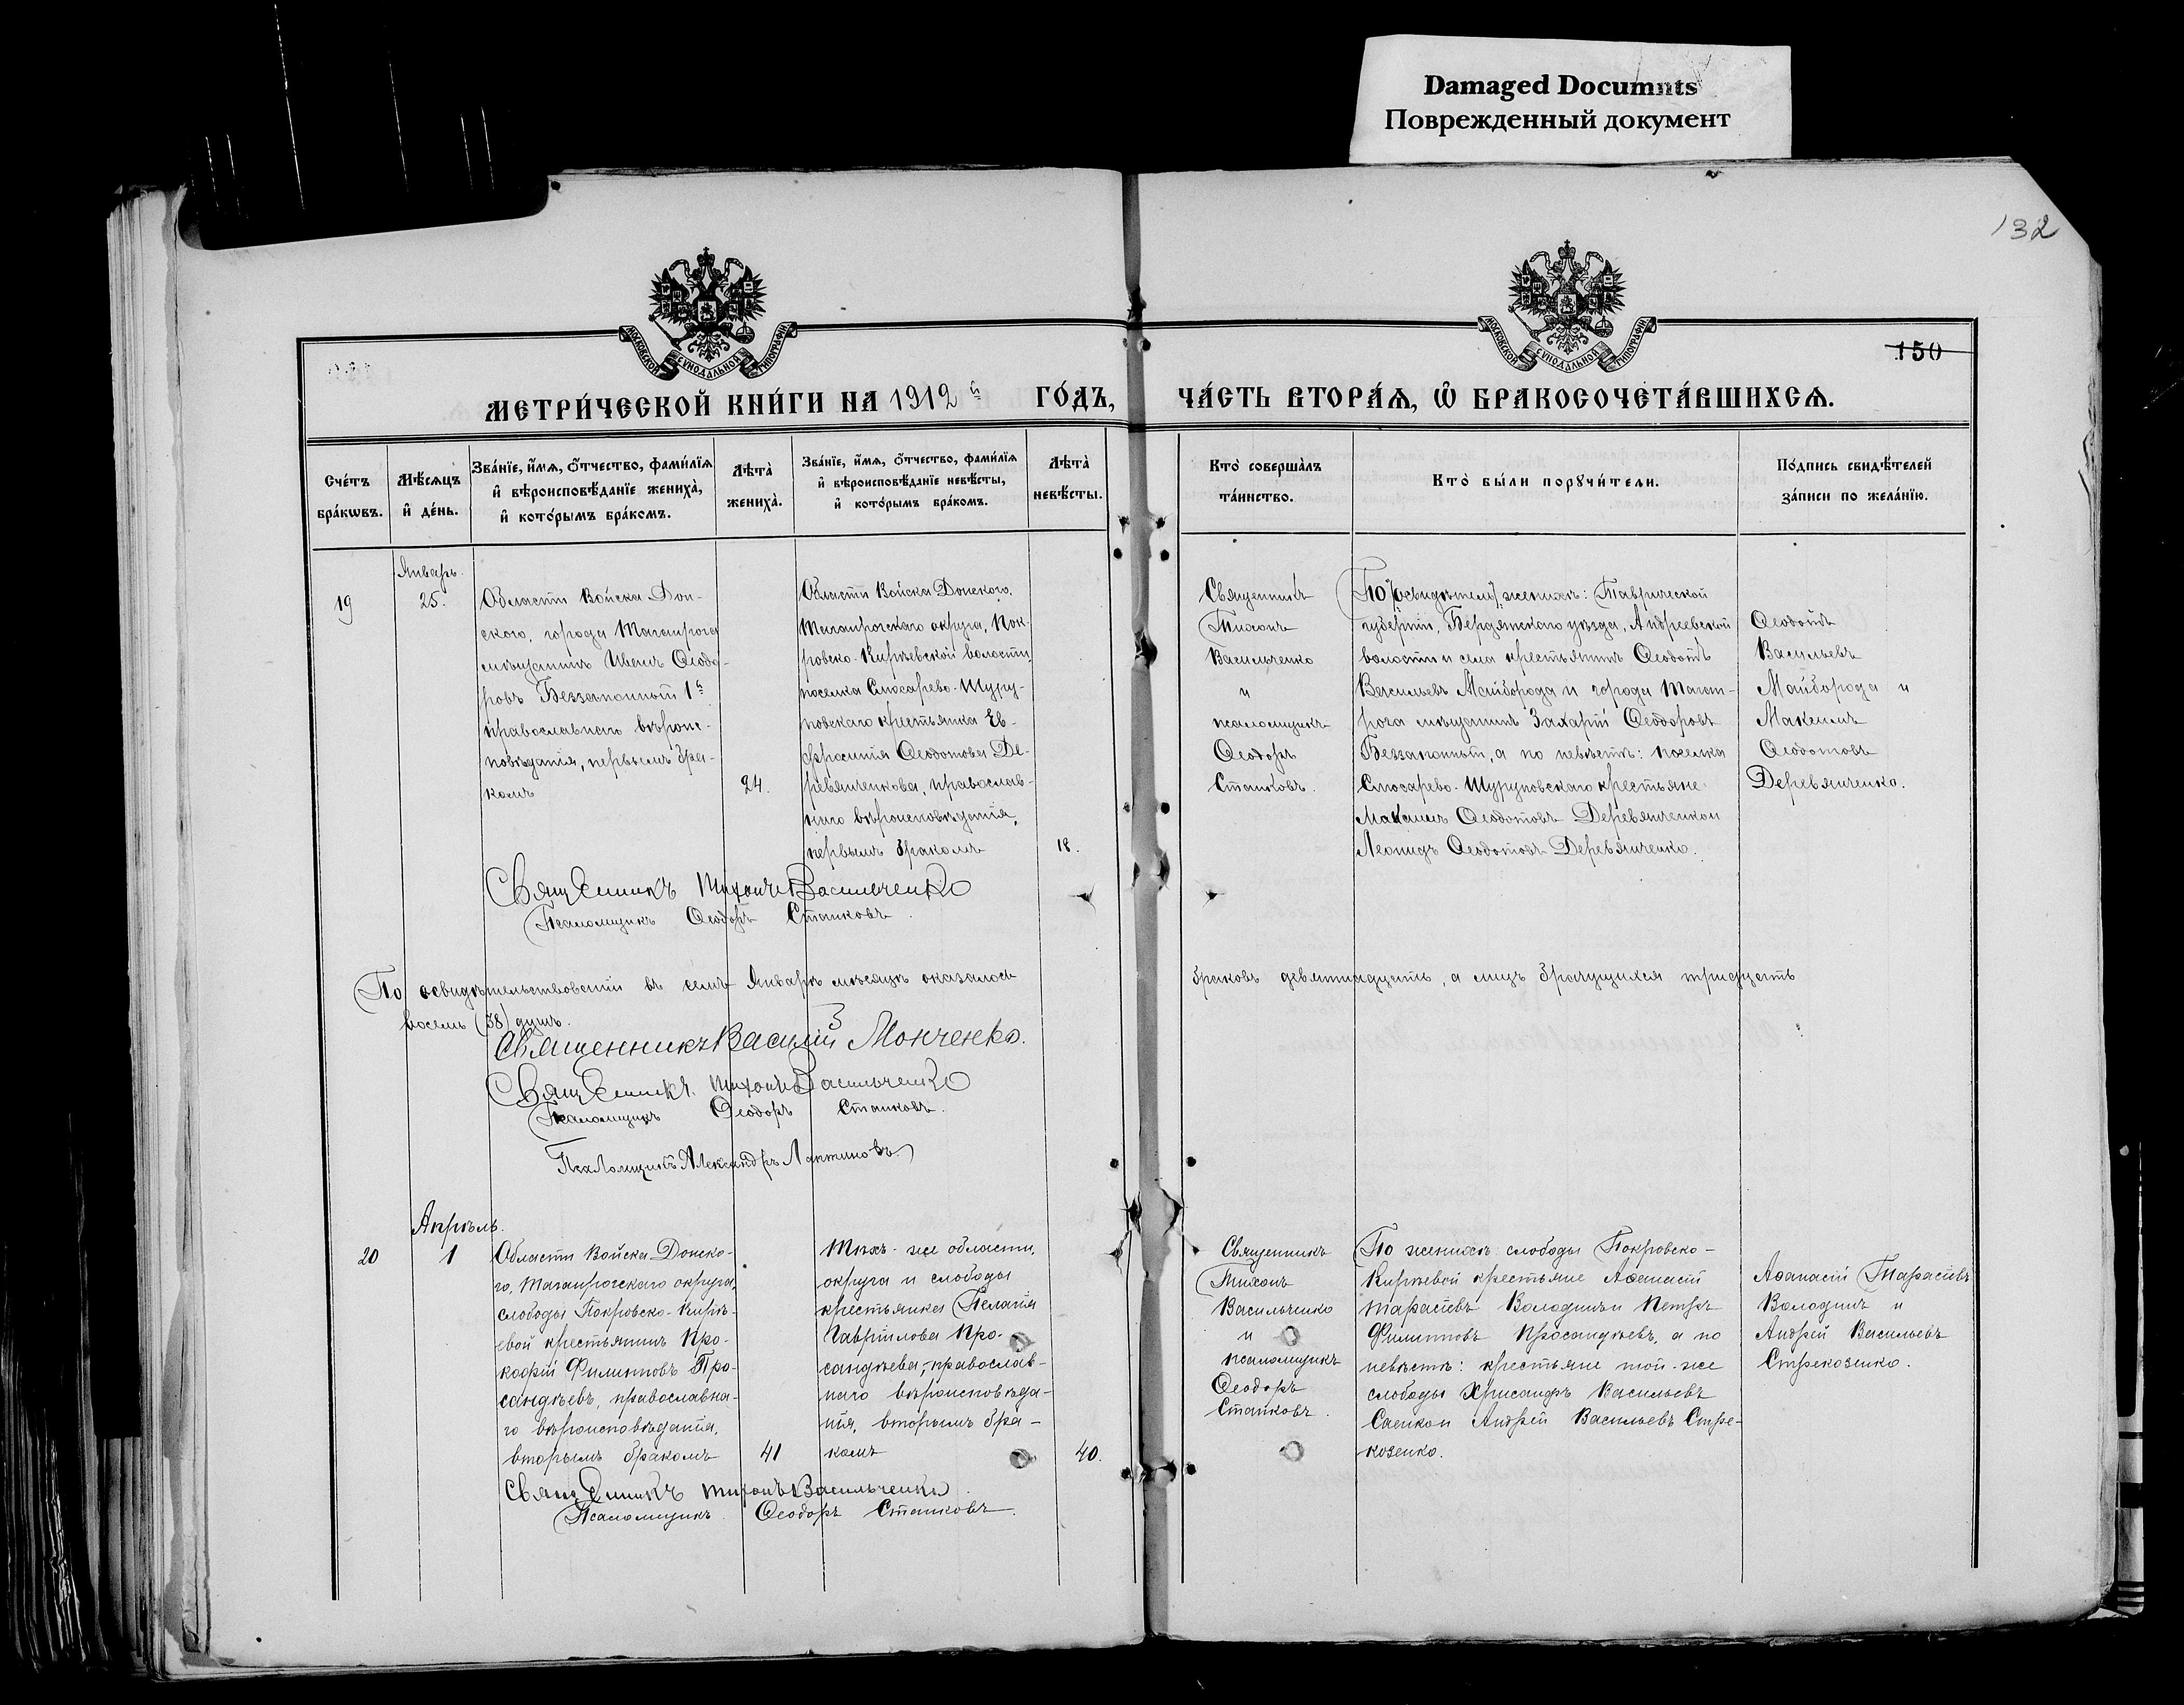 Damaged Documnts
Поврежденный документ
132
150
МОСКОВСКОЙ СѴНОДАЛЬНОЙ ТИПОГРАФІИ
МОСКОВСКОЙ СѴНОДАЛЬНОЙ ТИПОГРАФІИ
МЕТРИ́ЧЕСКОЙ КНИ́ГИ НА 1912й ГО́ДЪ, ЧА́СТЬ ВТОРА́Ѧ, Ѡ БРАКОСОЧЕТА́ВШИХСѦ.
Сче́тъ бра́кѡвъ.
Мѣ́сяцъ и де́нь.
Зва́нїе, и́мѧ, ѻ́тчество, фами́лїѧ и вѣроисповѣ́данїе жениха̀, и кото́рымъ бра́комъ.
Лѣта̀ жениха̀.
Зва́нїе, и́мѧ, ѻ́тчество, фами́лїѧ и вѣроисповѣ́данїе невѣ́сты, и кото́рымъ бра́комъ.
Лѣта̀ невѣ́сты.
Кто̀ соверша́лъ та́инство.
Кто̀ бы́ли порꙋчи́тели.
По́дпись свидѣ́телей за́писи по жела́нїю.
19
Январь
25.
Области Войска Дон-
ского, города Таганрога
мѣщанинъ Иванъ Ѳеодо-
ровъ Беззапонный 1й
православнаго вѣроис-
повѣданія, первымъ бра-
комъ
24.
Области Войска Донского,
Таганрогскаго округа, Пок-
ровско-Кирѣевской волости,
поселка Слюсарево-Шуру-
повскаго крестьянка Ев-
фросинія Ѳеодотова Де-
ревянченкова, православ-
наго вѣроисповѣданія,
первымъ бракомъ
18.
Священникъ
Тихонъ
Васильченко
и
псаломщикъ
Ѳеодоръ
Станковъ.
женихѣ: Таврической
губерніи, Бердянскаго уѣзда, Андреевской
волости и села крестьянинъ Ѳеодотъ
Васильевъ Майборода и города Таган-
рога мѣщанинъ Захарій Ѳеодоровъ
Беззапонный, а по невѣстѣ: поселка
Слюсарево-Шуруповскаго крестьяне
Максимъ Ѳеодотовъ Деревянченко и
Леонидъ Ѳеодотовъ Деревянченко.
Ѳеодотъ
Васильевъ
Майборода и
Максимъ
Ѳеодотовъ
Деревянченко.
Священникъ Тихонъ Васильченко
Псаломщикъ Ѳеодоръ Станковъ.
По освидѣтельствованіи въ семъ Январѣ мѣсяцѣ оказалось браковъ девятнадцать, а лицъ брачущихся тридцать
восемь (38) душъ.
Священникъ Василій Монченко.
Священникъ Тихонъ Васильченко
Псаломщикъ Ѳеодоръ Станковъ.
Псаломщикъ Александръ
Апрѣль.
20
1
Области Войска Донско-
го, Таганрогскаго округа,
слободы Покровско-Кирѣ-
евой крестьянинъ Про-
кофій Филипповъ Про-
сандѣевъ, православна-
го вѣроисповѣданія,
вторымъ бракомъ
41
Тѣхъ-же области,
округа и слободы
крестьянка Пелагія
Гавріилова Про-
сандѣева, православ-
наго вѣроисповѣда-
нія, вторымъ бра-
комъ
40.
Священникъ
Тихонъ
Васильченко
и
псаломщикъ
Ѳеодоръ
Станковъ.
По женихѣ: слободы Покровско-
Кирѣевой крестьяне Аѳанасій
Тарасіевъ Володинъ и Петръ
Филипповъ Просандѣевъ, а по
невѣстѣ: крестьяне той-же
слободы Хрисанфъ Васильевъ
Саенко и Андрей Васильевъ Стре-
козенко.
Аѳанасій Тарасіевъ
Володинъ и
Андрей Васильевъ
Стрекозенко.
Священникъ Тихонъ Васильченко
Псаломщикъ Ѳеодоръ Станковъ.